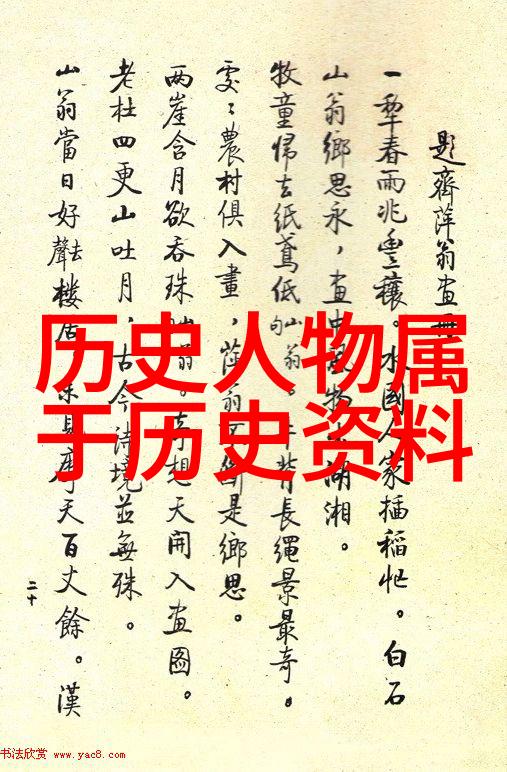 題齊萍翁畫冊
一犂春雨兆豐穰。水國人家插稻忙。白石
山翁鄉思永,畫中物湖湘。
牧童歸去紙鳶低山翁句。牛背長繩景最奇。
處〻農村俱入畫,萍翁是鄉思。
兩崖含月欲吞珠山翁。奇想天開入畫圖。
老杜四更山吐月,古今詩境並無殊。
山翁當日好去聲樓居摩天百丈餘。漢
二十
历史人物属
于历史资料
书法欣赏 www.yac8.com